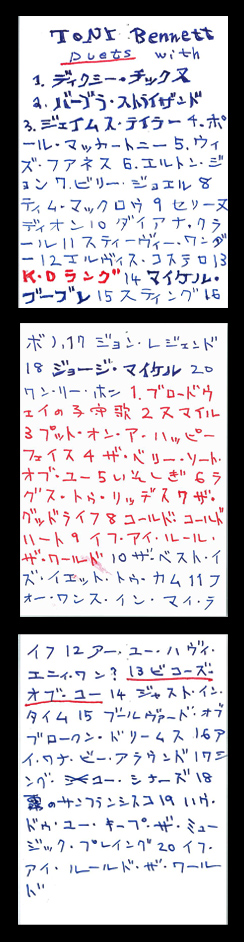 TONY Bennett
Duets with
1. ディクシー・チックス
2. バーブラ・ストライザンド
3. ジェイムス・テイラー 4. ポ
ール・マッカートニー 5. ウィ
ズ・ファネス 6. エルトン・ジ
ョン 7. ビリー・ジョエル 8
ティム・マックロウ 9 セリーヌ
ディオン 10 ダイアナ・クラ
ール 11 スティーヴィー・ワンダ
ー 12 エルヴィス・コステロ 13
K・D ラング 14 マイケル・
ブーブレ 15 スティング 16
ボノ, 17 ジョン・レジェンド
18 ジョージ・マイケル 20
ワン・リー・ホン 1. ブロードウ
ェイの子守歌 2 スマイル
3 プット・オン・ア・ハッピー
フェイス 4 ザ・ベリー・ソート・
オブ・ユー 5 いそしぎ 6 ラ
グス・トゥ・リッデス 7 ザ・
グッドライフ 8 コールド・コールド
ハート 9 イフ・アイ・ルール・
ザ・ワールド 10 ザ・ベスト・イ
ズ・イエット・トゥ・カム 11 フ
ォー・ワンス・イン・マイ・ラ
イフ 12 アー・ユー・ハヴィ・
エニィ・ワン? 13 ビコーズ・
オブ・ユー 14 ジャスト・イン・
タイム 15 ブールヴァード・オブ
ブロークン・ドリームス 16 アイ
・ワナ・ビー・アラウンド 17 シ
ング・ユー・シナーズ 18
霧のサンフランシスコ 19 ハウ・
ドゥ・ユー・キープ・ザ・ミュー
ジック・プレイング 20 イフ・
アイ・ルールド・ザ・ワール
ド